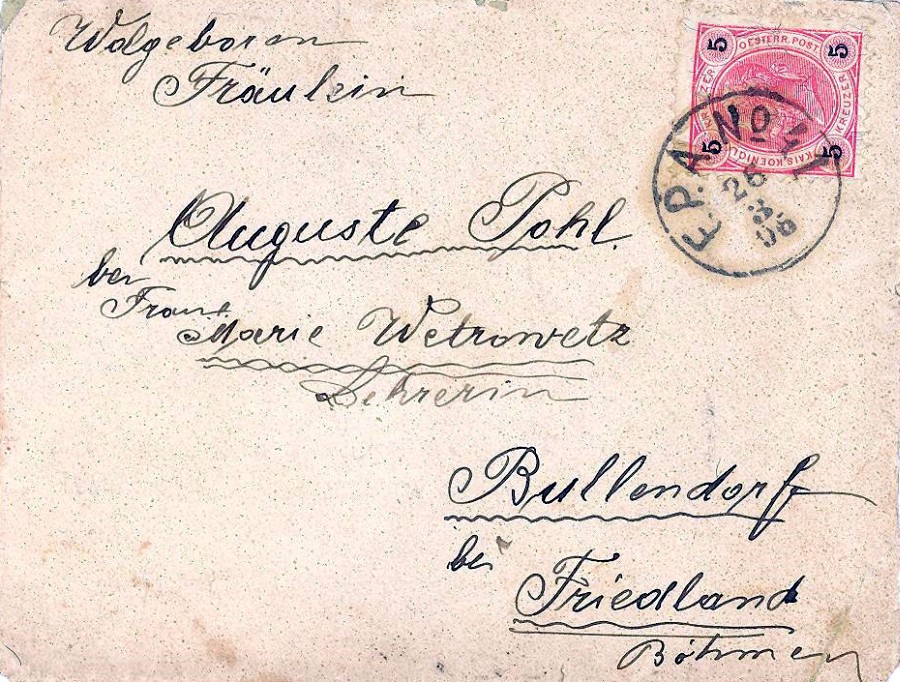 Wolgeboren
Fräulein
5 OESTERR. POST. 5
KREUZER KREUZER
5 KAIS. KOENIGL. 5
F.P.A. No 41
26
3
98
Auguste Pohl.
bei
Frau
Marie Wetrowetz
Lehrerin
Bullendorf
bei
Friedland
Böhmen